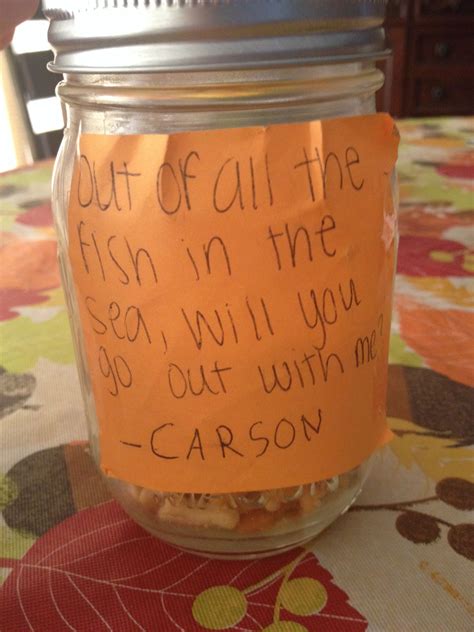 out of all the
fish in the
sea, will you
go out with me?
-CARSON